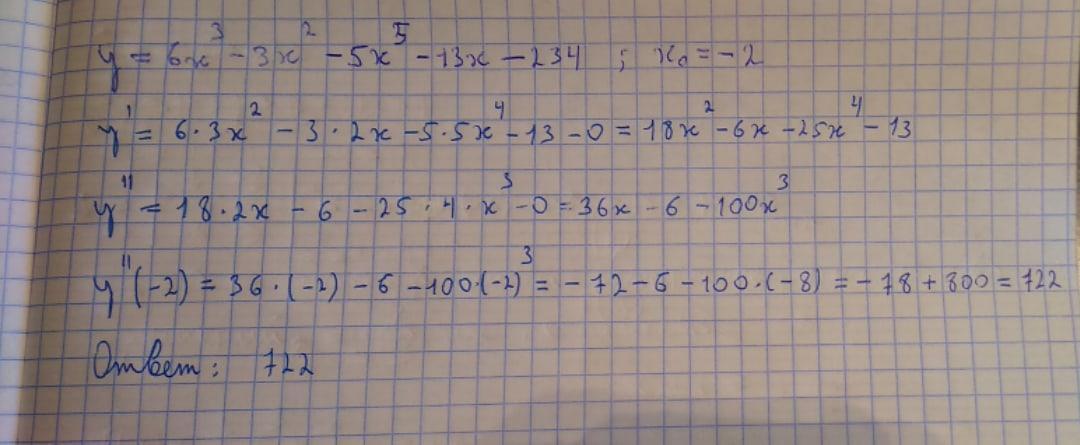 y = 6x³ - 3x² - 5x⁵ - 13x - 234 ; x₀ = -2
y' = 6·3x² - 3·2x - 5·5x⁴ - 13 - 0 = 18x² - 6x - 25x⁴ - 13
y'' = 18·2x - 6 - 25·4·x³ - 0 = 36x - 6 - 100x³
y''(-2) = 36·(-2) - 6 - 100·(-2)³ = -72 - 6 - 100·(-8) = -78 + 800 = 722
Ответ: 722